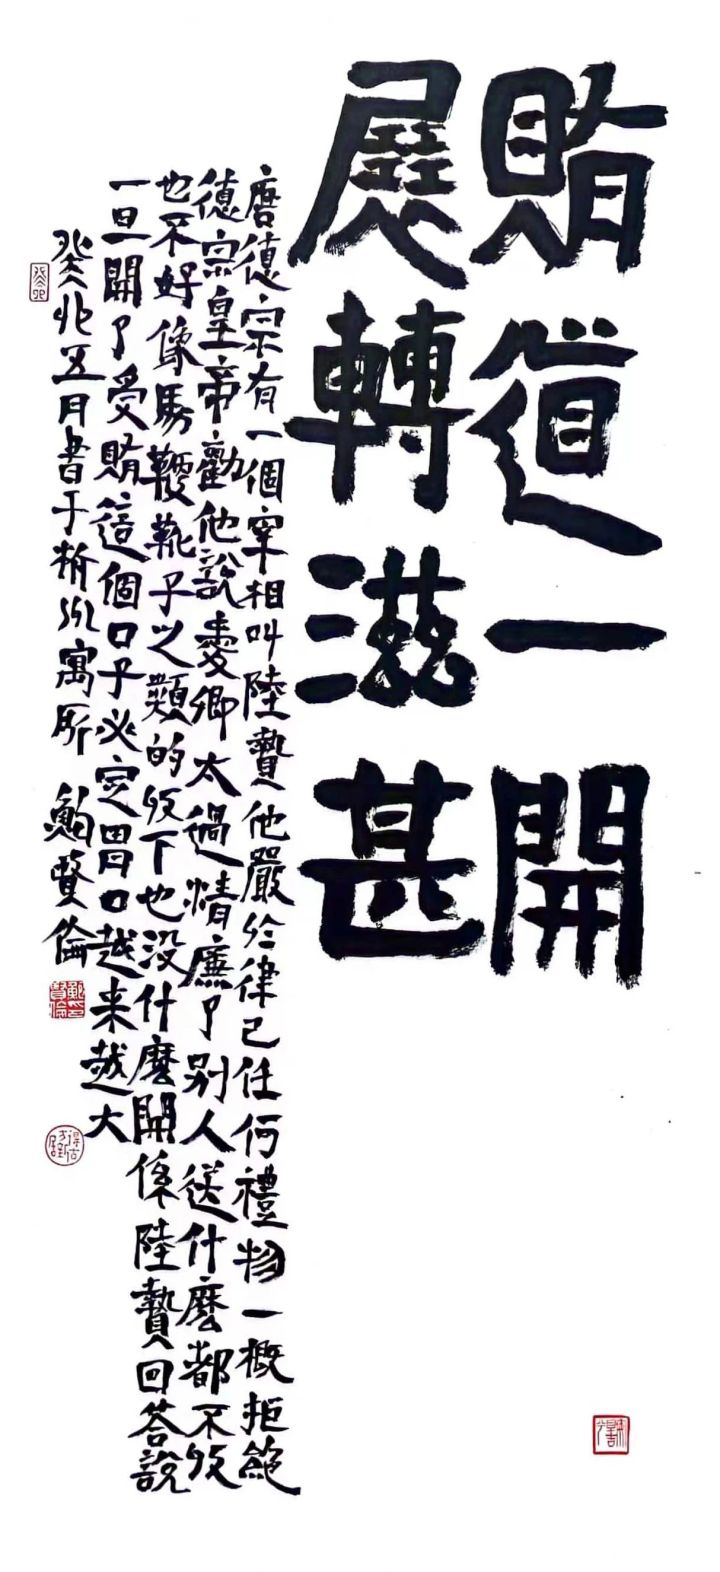 賄道一開
展轉滋甚
唐德宗有一個宰相叫陸贄他嚴於律己任何禮物一概拒絕
德宗皇帝勸他說愛卿太過清廉了别人送什麽都不收
也不好像馬鞭靴子之類的收下也没什麽開係陸贄回答說
一旦開了受賄這個口子必定胃口越来越大
癸卯五月書于寓所 鮑賢倫
癸卯